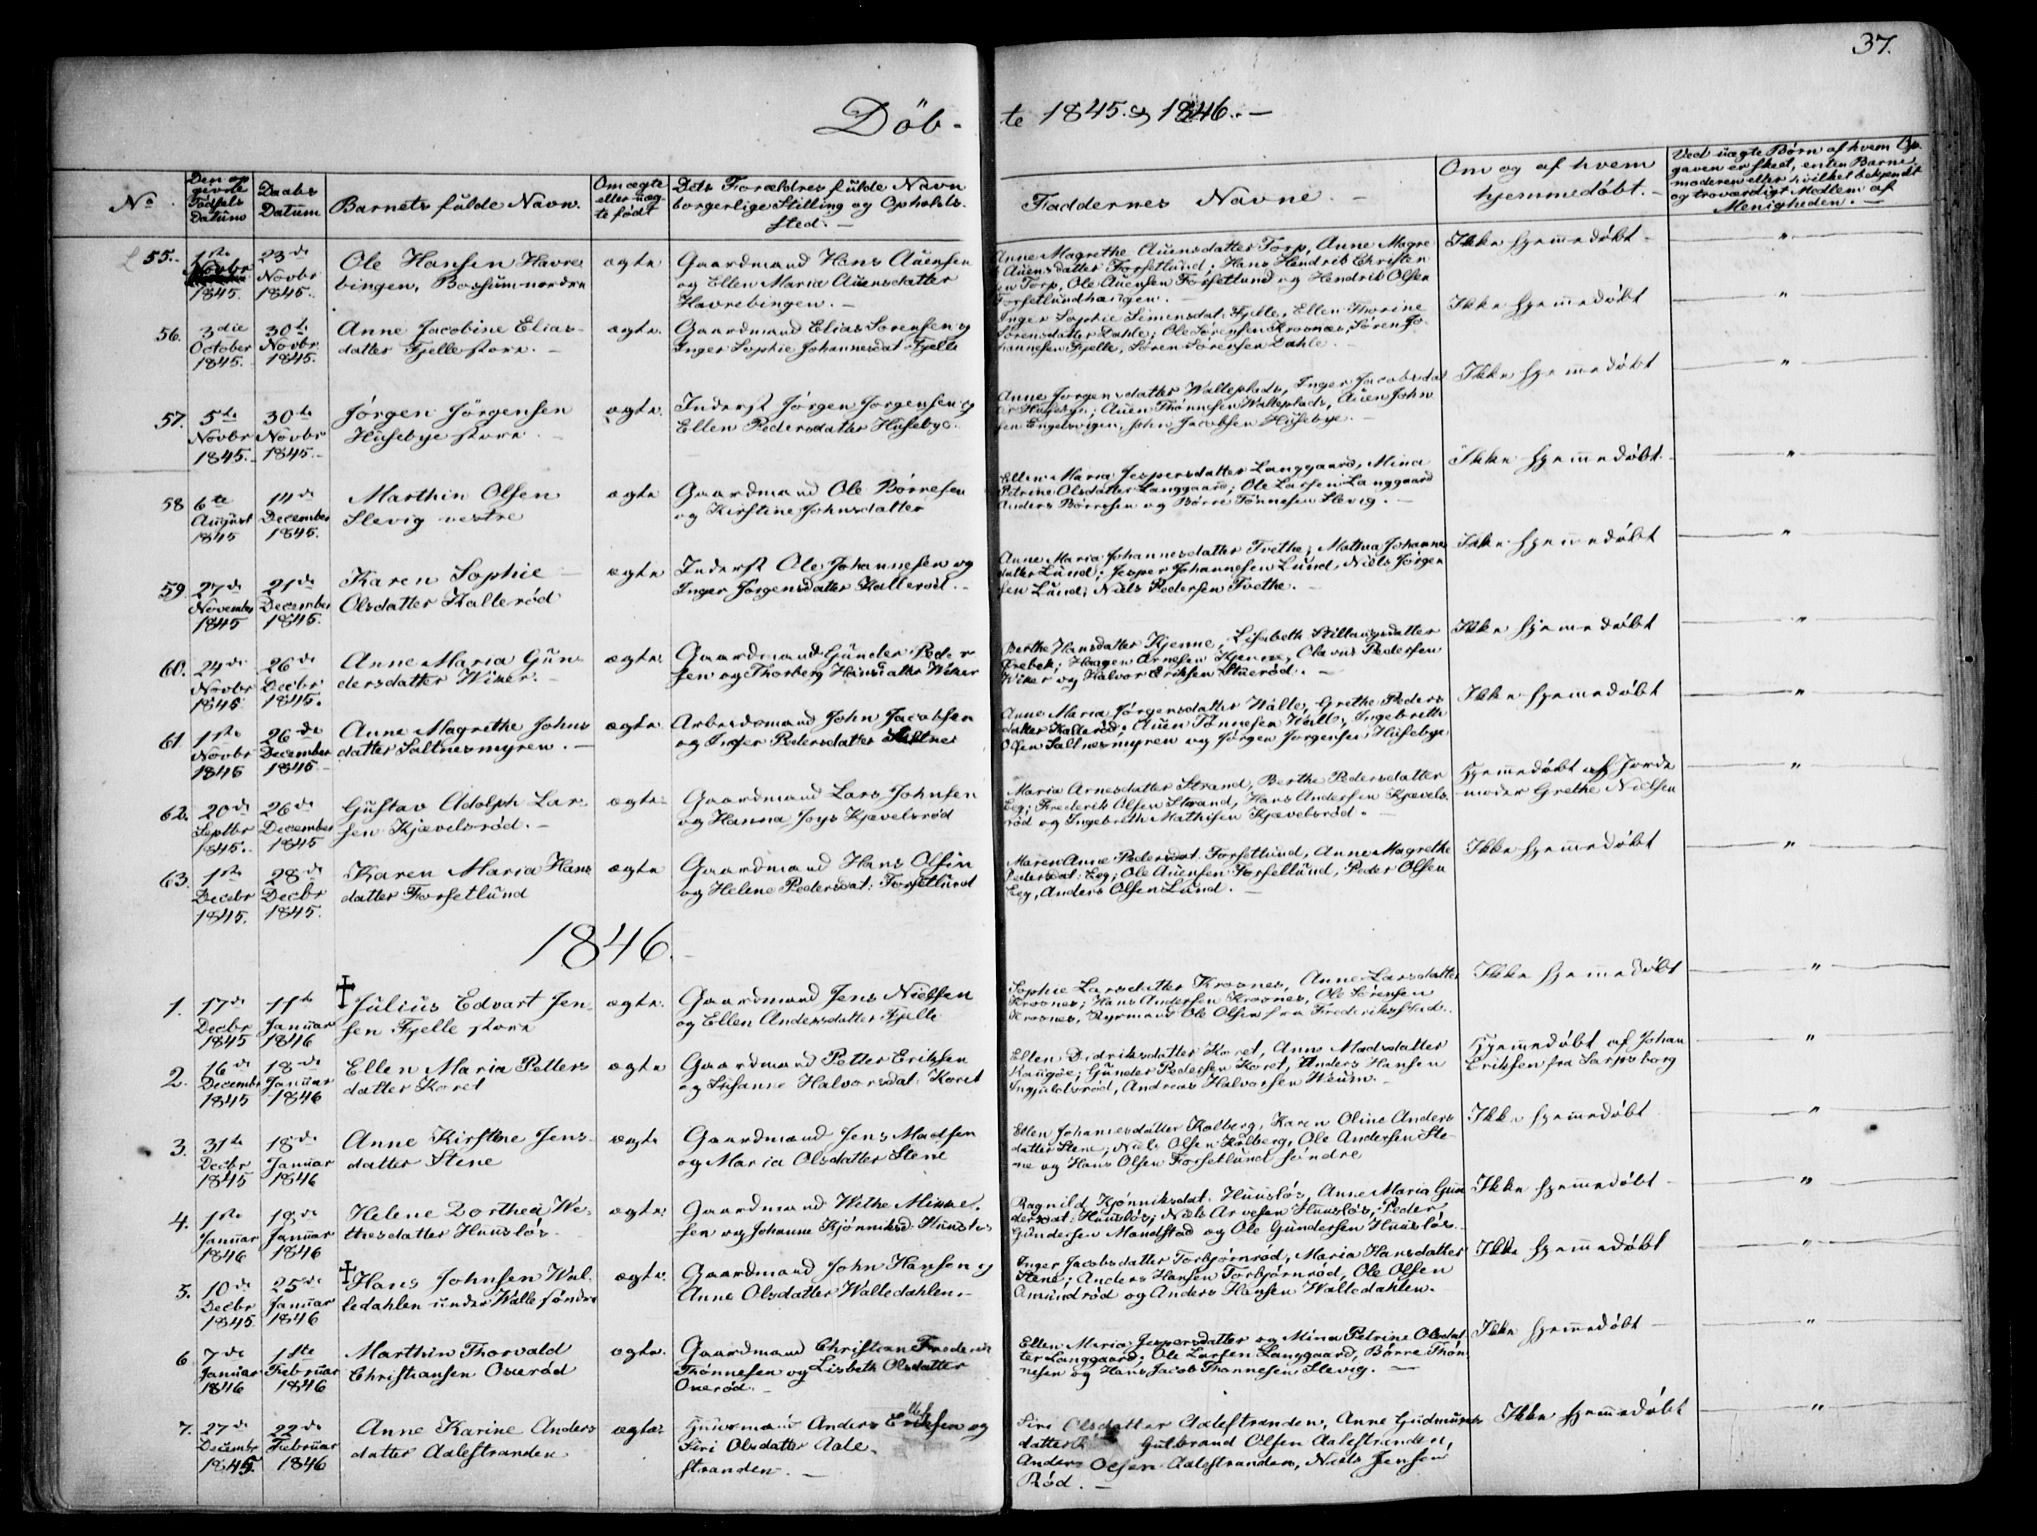 37.
Döb-te 1845. & 1846. —
No.
Den op
givede
Fødsels
Datum
Daabs
Datum
Barnets fulde Navn.
Om ægte
eller uæg
te født
Dets Forældres fulde Navn
borgerlige Stilling og Opholds-
sted. —
Faddernes Navne. —
Om og af hvem
hjemmedøbt. —
Ved uægte Børn af hvem Op
gaven er skeet, enten Barne
moderen eller hvilket bekjendt
og troværdigt Medlem af
Menigheden. —
55.
1ste
Novbr
1845.
23de
Novbr
1845.
Ole Hansen Havre
bingen, Bossum nordre
ægte
Gaardmand Hans Auensen
og Ellen Maria Auensdatter
Havrebingen. —
Anne Magrethe Auensdatter Torp, Anne Magre
Auensdatter Forsetlund; Hans Hendrik Christen
sen Torp, Ole Auensen Forsetlund og Hendrik Olsen
Forsetlundhaugen. —
Ikke hjemmedøbt —
"
56.
3die
October
1845.
30te
Novbr
1845.
Anne Jacobine Elias-
datter Fjelle store. —
ægte.
Gaardmand Elias Sørensen og
Inger Sophie Johannesdat. Fjelle
Inger Sophie Simensdat. Fjelle, Ellen Thorine
Sørensdatter Dahle; Ole Sørensen Krosnæs, Søren Jo-
hannesen Fjelle, Søren Sørensen Dahle. —
Ikke hjemmedøbt
"
57.
5te
Novbr
1845.
30te
Novbr
1845.
Jørgen Jörgensen
Husebye store. —
ægte.
Inderst Jørgen Jørgensen og
Ellen Pedersdatter Husebye.
Anne Jørgensdatter Walleplads, Inger Jacobsdat
ter Husebye; Auen Thønnesen Walleplads, Auen John
sen Engelsvigen, John Jacobsen Husebye. —
Ikke hjemmedøbt
"
58
6te
August
1845
14de
December
1845.
Marthin Olsen
Slevig vestre
ægte
Gaardmand Ole Børresen
og Kirstine Johnsdatter
Ellen Maria Jespersdatter Langgaard, Mina
Petrine Olsdatter Langgaard; Ole Larsen Langgaard
Anders Børresen og Børre Tønnesen Slevig. —
Ikke hjemmedøbt.
"
59.
27de
November
1845
21de
December
1845.
Karen Sophie
Olsdatter Kallerød
ægte
Inderst Ole Johannesen og
Inger Jørgensdatter Kallerød. —
Anne Maria Johannesdatter Tvethe; Mathea Johannes
datter Lund; Jesper Johannesen Lund, Niels Jørgen
sen Lund, Niels Pedersen Tvethe. —
Ikke hjemmedøbt
"
60.
24de
Novbr
1845
26de
Decbr
1845.
Anne Maria Gun-
dersdatter Wiker. —
ægte.
Gaardmand Gunder Peder
sen og Thorberg Hansdatter Wiker
Berthe Hansdatter Kjenne, Lisabeth Stillaugsdatter
Ørebek; Haagen Arnesen Kjenne, Olavus Pedersen
Wiker og Halvor Eriksen Stuerød. —
Ikke hjemmedøbt
"
61
1ste
Novbr
1845
26de
December
1845
Anne Magrethe Johns
datter Saltnesmyren. —
ægte
Arbeidsmand John Jacobsen
og Inger Pedersdatter Saltnes
Anne Maria Jørgensdatter Walle, Grethe Peders
datter Kallerød; Auen Tønnesen Walle, Ingebreth
Olsen Saltnesmyren og Jørgen Jørgensen Husebye
Ikke hjemmedøbt
"
62.
20de
Septbr
1845.
26de
December
1845
Gustav Adolph Lar-
sen Kjævelsrød. —
ægte
Gaardmand Lars Johnsen
og Hanna Joys Kjævelsrød
Maria Arnesdatter Strand, Berthe Pedersdatter
Eeg; Frederik Olsen Strand, Hans Andersen Kjævels-
rød og Ingebreth Mathisen Kjævelsrød. —
Hjemmedøbt af Jorde
moder Grethe Nielsen
"
63.
1ste
Decbr
1845.
28de
Decbr
1845.
Karen Maria Hans
datter Forsetlund
ægte
Gaardmand Hans Olsen
og Helene Pedersdat: Forsetlund
Maren Anne Pedersdat. Forsetlund, Anne Magrethe
Pedersdat: Eeg; Ole Auensen Forsetlund, Peder Olsen
Eeg, Anders Olsen Lund. —
Ikke hjemmedøbt
"
1846.
1.
17de
Decbr
1845
11te
Januar
1846
† Julius Edvart Jen-
sen Fjelle store
ægte.
Gaardmand Jens Nielsen
og Ellen Andersdatter Fjelle
Sophie Larsdatter Krosnes, Anne Larsdatter
Krosnes; Hans Andersen Krosnes, Ole Sørensen
Krosnes, Styrmand Ole Olsen fra Frederiksstad.
Ikke hjemmedøbt
"
2.
16de
Decembr
1845
18de
Januar
1846
Ellen Maria Petters
datter Koret
ægte
Gaardmand Petter Eriksen
og Susanne Halvorsdat: Koret
Ellen Didriksdatter Koret, Anne Madsdatter
Raugøe; Gunder Pedersen Koret, Anders Hansen
Ingjulsrød, Andreas Halvorsen Weum. —
Hjemmedøbt af Johan
Eriksen fra Sarpsborg
"
3.
31te
Decbr
1845
18de
Januar
1846
Anne Kirstene Jens-
datter Stene
ægte
Gaardmand Jens Madsen
og Maria Olsdatter Stene
Ellen Johannesdatter Kolberg, Karen Oline Anders
datter Stene; Niels Olsen Kolberg, Ole Andersen Ste-
ne og Hans Olsen Forsetlund søndre
Ikke hjemmedøbt
"
4.
1ste
Januar
1846
18de
Januar
1846
Helene Dorthea We-
thesdatter Huusløs
ægte.
Gaardmand Wethe Mikkel-
sen og Johanne Kjønniksd. Huusløs
Ragnild Kjønniksdat. Huusløs, Anne Maria Gun
dersdat: Huusløs; Niels Arvesen Huusløs, Peder
Gundersen Mandstad og Ole Gundersen Huusløs
Ikke hjemmedøbt —
"
5.
10de
Decbr
1845
25de
Januar
1846
† Hans Johnsen Wal-
ledahlen under Walle søndre
ægte.
Gaardmand John Hansen og
Anne Olsdatter Walledahlen. —
Inger Jacobsdatter Torbjørnrød, Maria Hansdatter
Stene; Anders Hansen Torbjørnrød, Ole Olsen
Amundrød og Anders Hansen Walledahlen. —
Ikke hjemmedøbt
"
6
7de
Januar
1846
1ste
Februar
1846
Marthin Thorvald
Christiansen Oxerød
ægte.
Gaardmand Christian Frederik
Thønnesen og Lisbeth Olsdatter
Oxerød. —
Ellen Maria Jespersdatter og Mina Petrine Olsdat
ter Langgaard; Ole Larsen Langgaard, Børre Thøn
nesen og Hans Jacob Thønnesen Slevig. —
Ikke hjemmedøbt —
"
7.
27de
Decembr
1845.
22de
Februar
1846
Anne Karine Anders
datter Aalestranden
ægte.
Huusmand Anders Eriksen og
Siri Olsdatter Aale-
stranden. —
Siri Olsdatter Aalestranden, Anne Gudmunds
datter Gulbrand Olsen Aalestranden,
Anders Olsen Aalestranden, Niels Jensen
Rød. —
Ikke hjemmedøbt
"